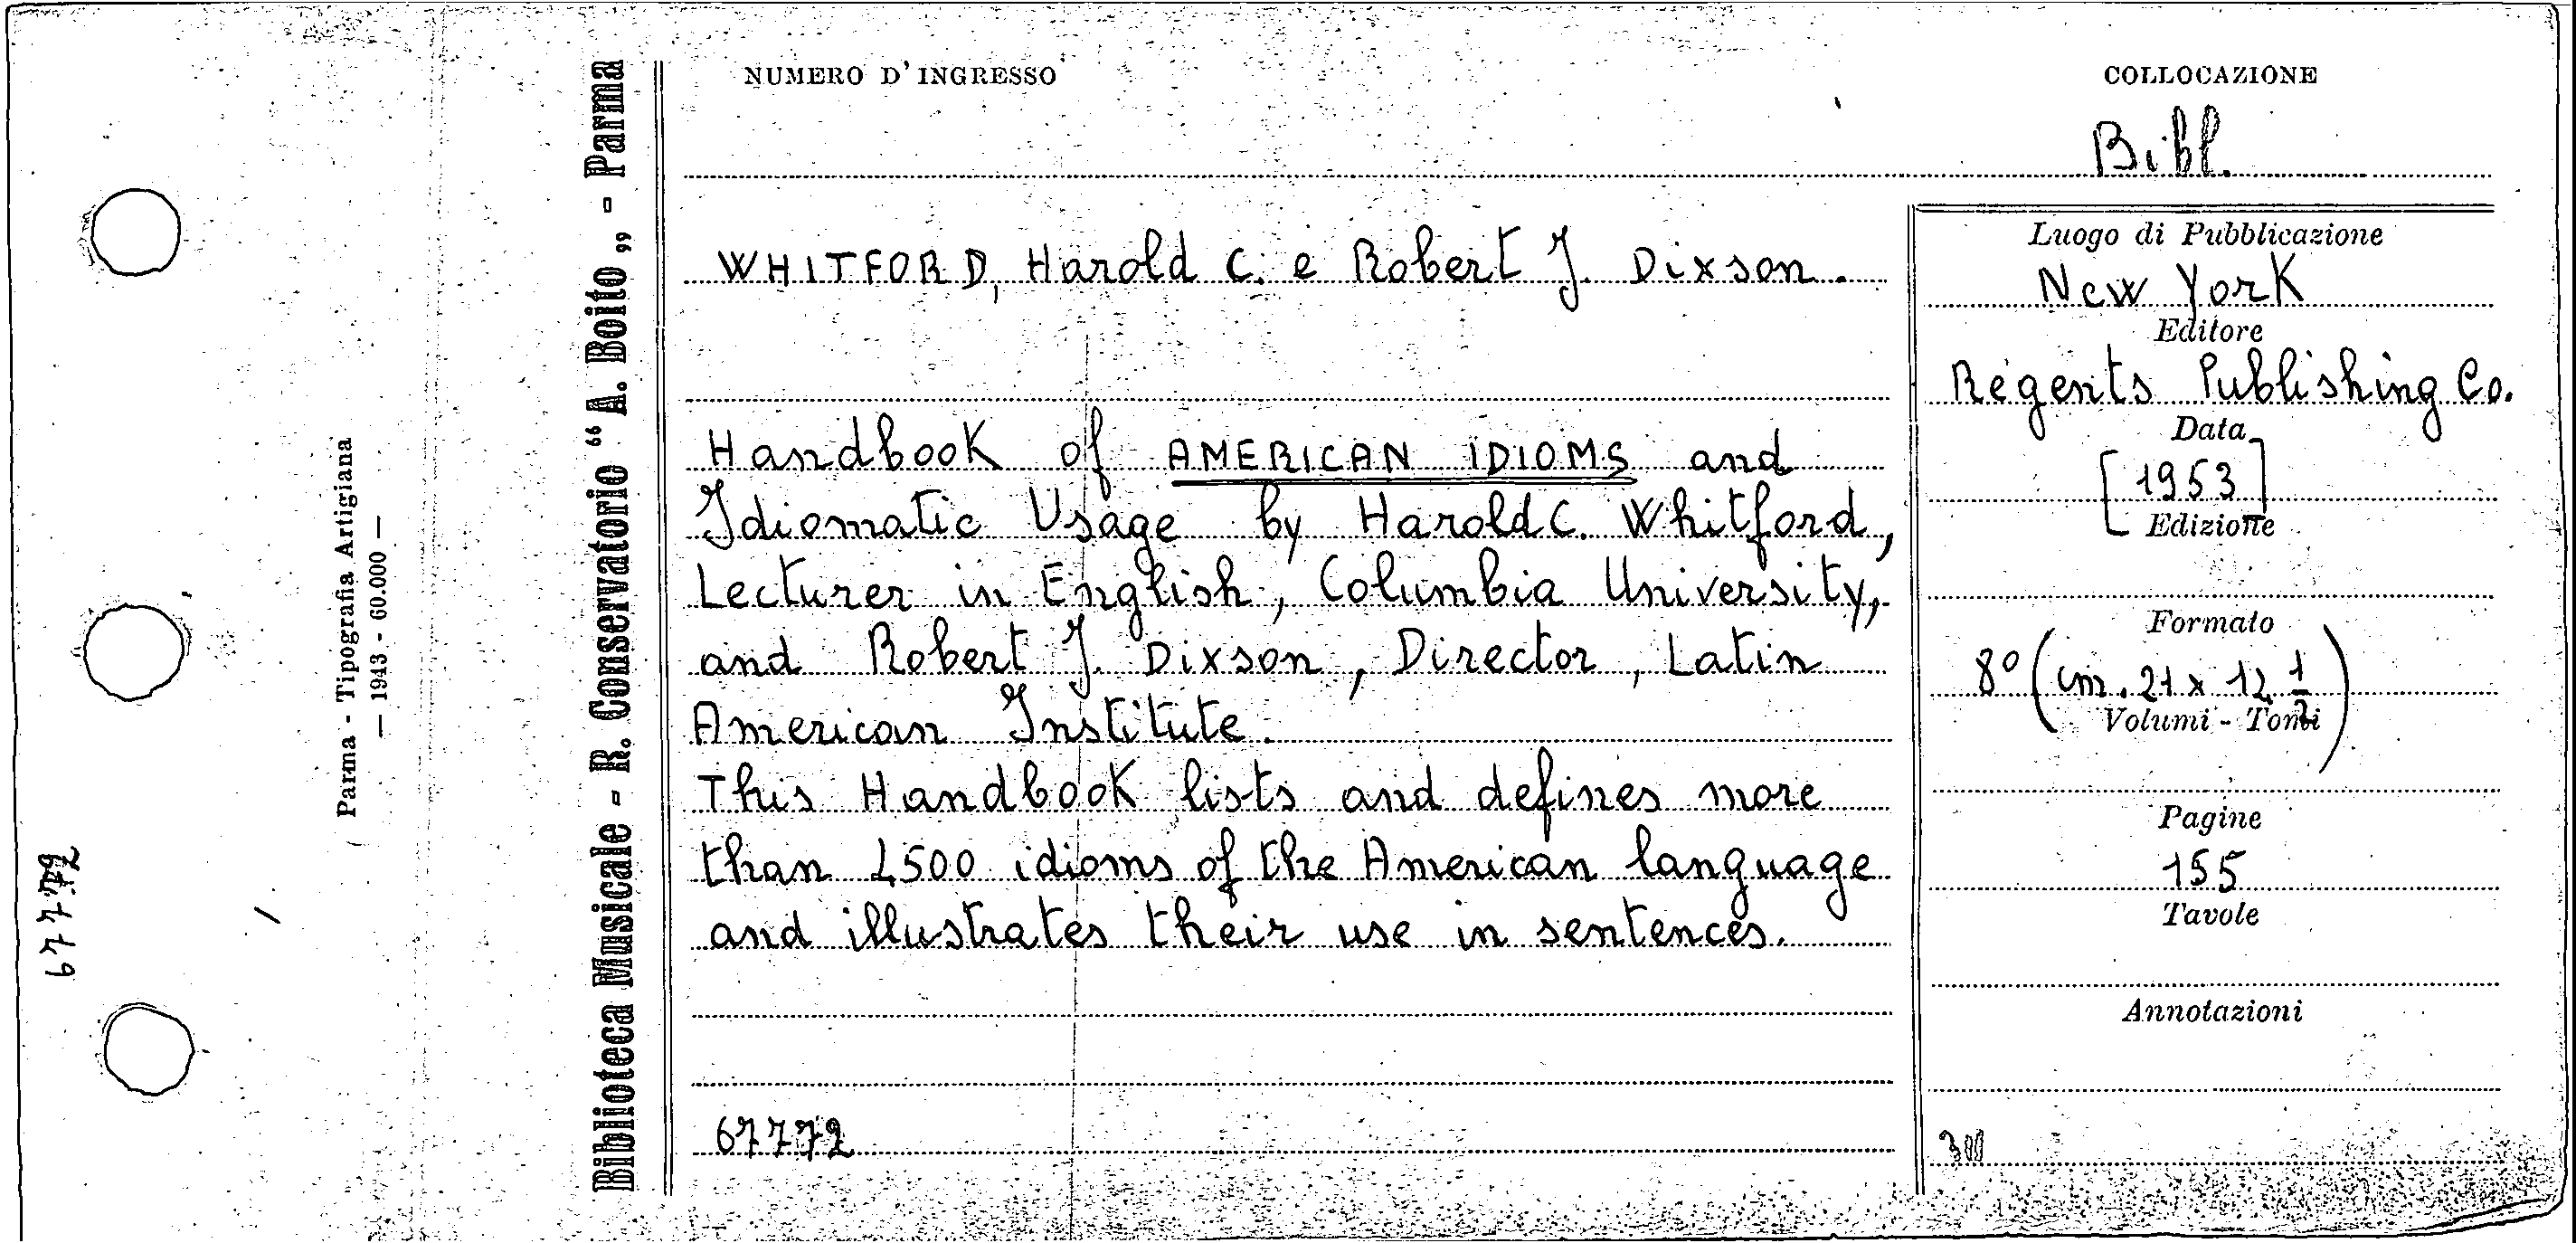 67772
Parma - Tipografia Artigiana
— 1943 - 60.000 —
Biblioteca Musicale - R. Conservatorio “ A. Boito „ - Parma
NUMERO D'INGRESSO
COLLOCAZIONE
Bibl.
WHITFORD, Harold C. e Robert J. Dixson.
Handbook of AMERICAN IDIOMS and
Idiomatic Usage by Harold C. Whitford,
Lecturer in English, Columbia University,
and Robert J. Dixson, Director, Latin
American Institute.
This Handbook lists and defines more
than 4500 idioms of the American language
and illustrates their use in sentences.
67772
Luogo di Pubblicazione
New York
Editore
Regents Publishing Co.
Data
[1953]
Edizione
Formato
8º (cm. 21 x 12 1/2)
Volumi - Tomi
Pagine
155
Tavole
Annotazioni